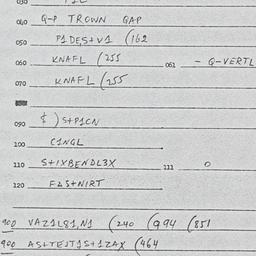 030
040 G-P TROWN GAP
050 P1DES+V1 (162
060 KNAFL (255 061 - Q-VERTL
070 KNAFL (255
090 $ ) S+P1CN
100 C1NGL
110 S+1XBENDL3X 111 O
120 F2S+NIRT
900 VAZ1L81,N1 (240 (994 (851
900 AS+TEJT1S+1ZAX (464